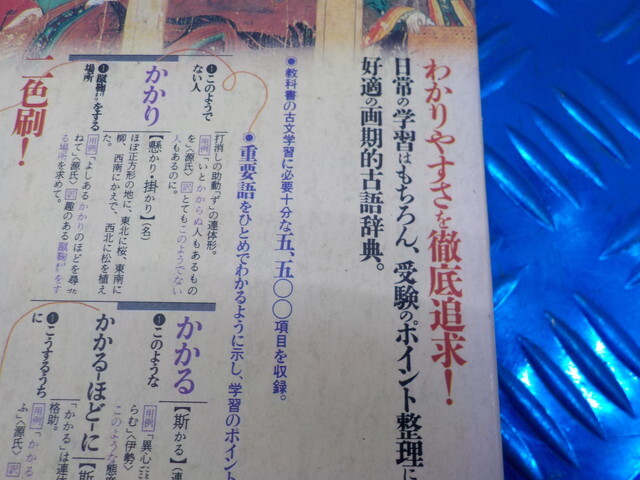 わかりやすさを徹底追求！
日常の学習はもちろん、受験のポイント整理に
好適の画期的古語辞典。
●教科書の古文学習に必要十分な五、五〇〇項目を収録。
●重要語をひとめでわかるように示し、学習のポイント
二色刷！
❶このようで
ない人
打消しの助動「ず」の連体形。
用例「いとかからぬ人もあるもの
を」〈源氏〉訳とてもこのようでない
人もあるのに。
かかり
【懸かり・掛かり】（名）
❶蹴鞠をする
場所
ほぼ正方形の地に、東北に桜、東南に
柳、西南にかえで、西北に松を植え
た。
用例「よしあるかかりのほどを尋
ねて」〈源氏〉訳趣のある蹴鞠をす
る場所を求めて。
かかる
【斯かる】（連
❶このような
用例「異心
らむ」〈伊勢〉
このような態度
かかる-ほど-に
【斯
❶こうするうち
に
「かかる」は連体
格助。
用例「かかる
ふ」〈源氏〉訳